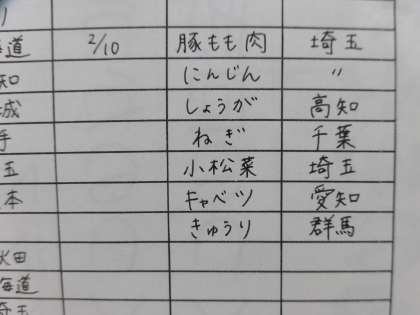 道 2/10 豚もも肉 埼玉
知 にんじん 〃
城 しょうが 高知
手 ねぎ 千葉
玉 小松菜 埼玉
本 キャベツ 愛知
きゅうり 群馬
秋田
海道
埼玉